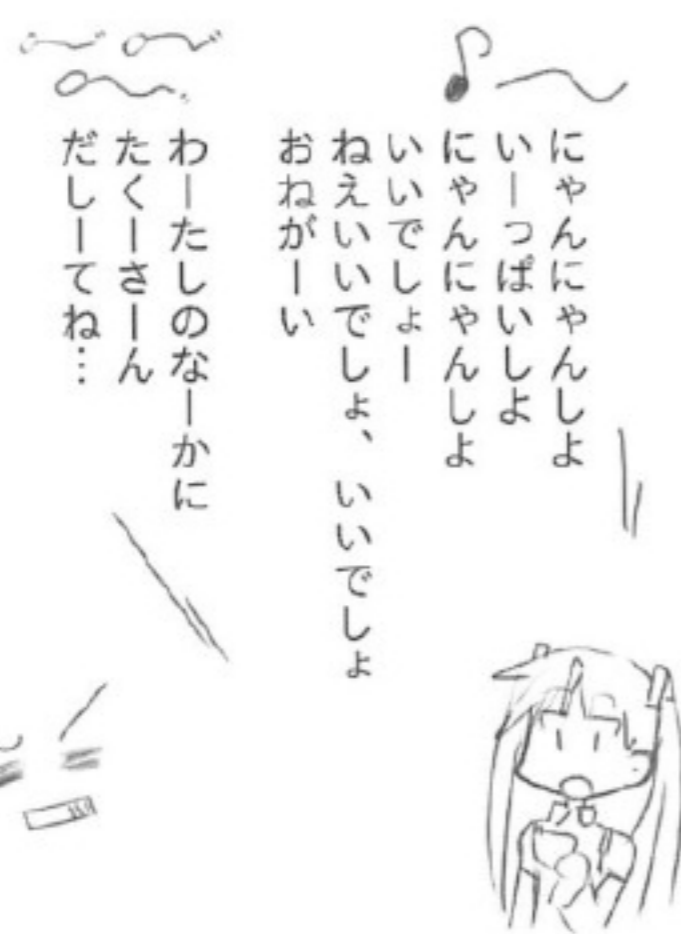 にゃんにゃんしよ
いーっぱいしよ
にゃんにゃんしよ
いいでしょー
ねえいいでしょ、いいでしょ
おねがーい
わーたしのなーかに
たくーさーん
だしーてね…